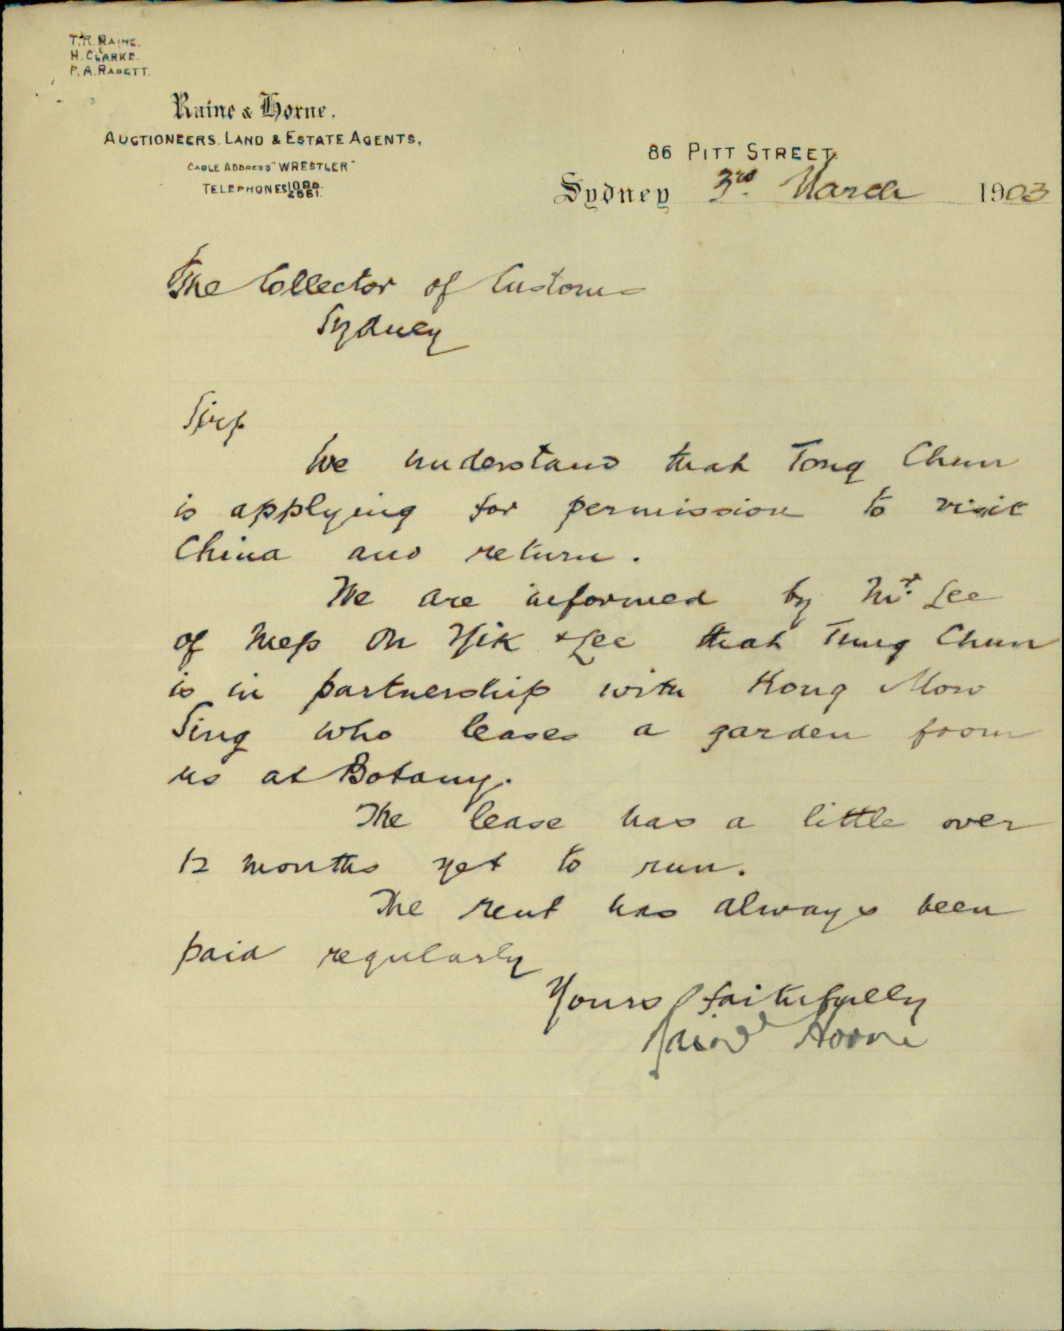 T. R. RAINE.
H. CLARKE.
P. A. RABETT.
Raine & Horne.
AUCTIONEERS. LAND & ESTATE AGENTS,
CABLE ADDRESS "WRESTLER"
TELEPHONES
86 PITT STREET,
Sydney 3rd March 1903
The Collector of Customs
Sydney
Sir
We understand that Tong Chun
is applying for permission to visit
China and return.
We are informed by Mr. Lee
of Mess On Yik & Lee that Tung Chun
is in partnership with Kong Mow
Sing who leases a garden from
us at Botany.
The lease has a little over
12 months yet to run.
The rent has always been
paid regularly
Yours faithfully
Raine & Horne